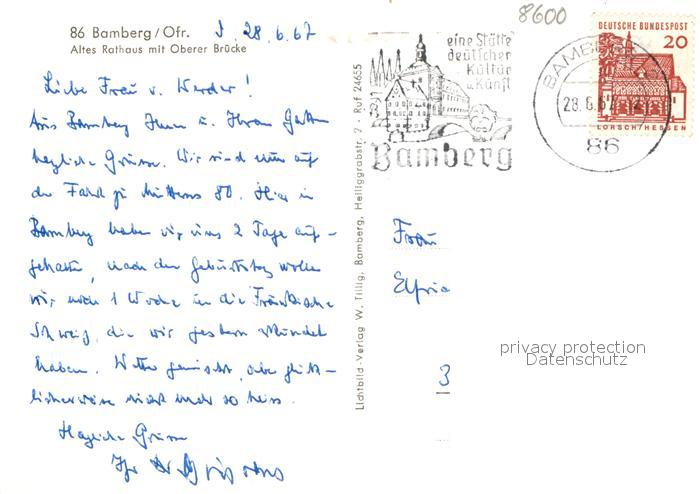 8600
86 Bamberg/Ofr. d. 28.6.67
Altes Rathaus mit Oberer Brücke
Liebe Frau v. Werder!
Aus Bamberg Ihnen u. Ihrem Gatten
herzliche Grüsse. Wir sind nun auf
der Fahrt zu Mutters 80. Hier in
Bamberg haben wir uns 2 Tage auf-
gehalten, nach dem Geburtstag wollen
wir noch 1 Woche in die Fränkische
Schweiz, die wir gestern
haben. Wetter gemischt, aber glück-
licherweise nicht mehr so heiss.
Herzliche Grüsse
Ihr
Lichtbild-Verlag W. Tillig, Bamberg, Heiliggrabstr. 2 - Ruf 24655
eine Stätte
deutscher
Kultur
u. Kunst
Bamberg
BAMBERG
28.6.67
86
DEUTSCHE BUNDESPOST
20
LORSCH/HESSEN
Frau
Elfrie
3
privacy protection
Datenschutz